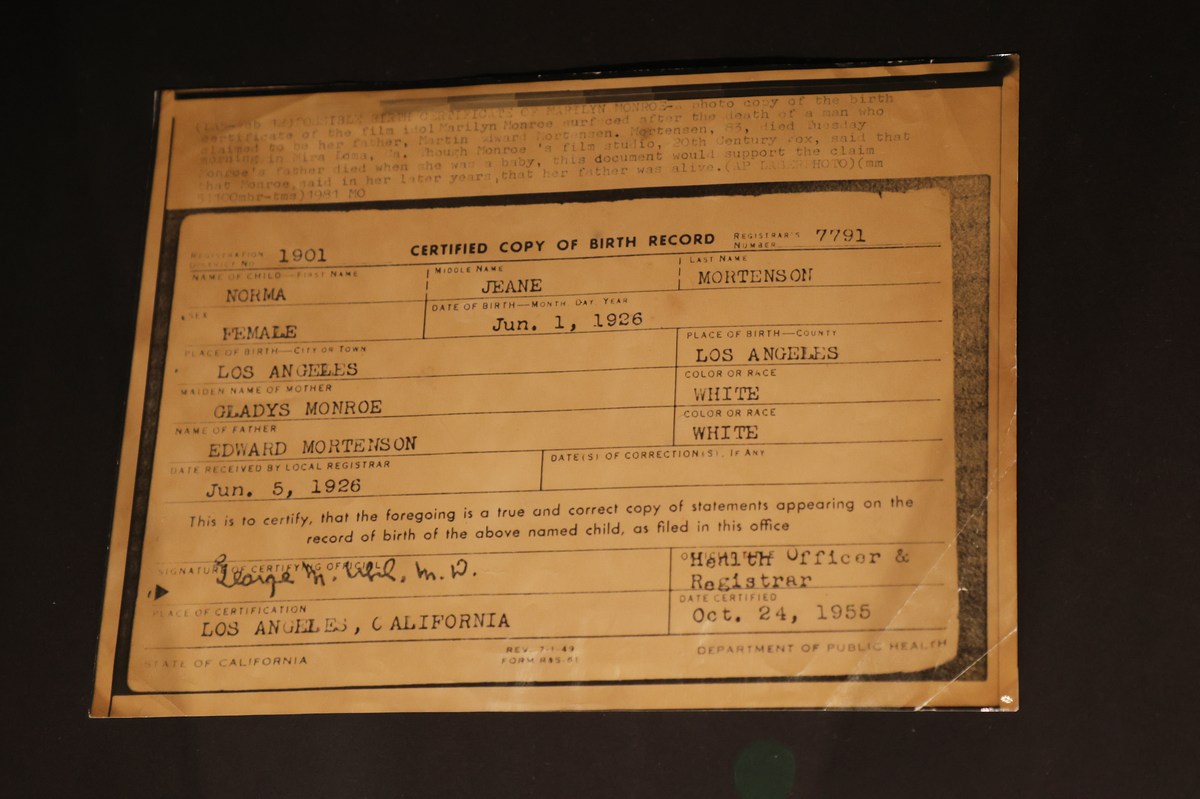 POSSIBLE BIRTH CERTIFICATE OF MARILYN MONROE-A photo copy of the birth
certificate of the film idol Marilyn Monroe surfaced after the death of a man who
claimed to be her father, Martin Edward Mortensen. Mortensen, 83, died Tuesday
morning in Mira Loma, Ca. Though Monroe 's film studio, 20th Century Fox, said that
Monroe's father died when she was a baby, this document would support the claim
that Monroe, said in her later years, that her father was alive. (AP LASERPHOTO)(mm
1981 MO
REGISTRATION DISTRICT NO. 1901 CERTIFIED COPY OF BIRTH RECORD REGISTRAR'S NUMBER 7791
NAME OF CHILD—FIRST NAME MIDDLE NAME LAST NAME
NORMA JEANE MORTENSON
SEX DATE OF BIRTH—MONTH, DAY, YEAR
FEMALE Jun. 1, 1926
PLACE OF BIRTH—CITY OR TOWN PLACE OF BIRTH—COUNTY
LOS ANGELES LOS ANGELES
MAIDEN NAME OF MOTHER COLOR OR RACE
GLADYS MONROE WHITE
NAME OF FATHER COLOR OR RACE
EDWARD MORTENSON WHITE
DATE RECEIVED BY LOCAL REGISTRAR DATE(S) OF CORRECTION(S), IF ANY
Jun. 5, 1926
This is to certify, that the foregoing is a true and correct copy of statements appearing on the
record of birth of the above named child, as filed in this office
SIGNATURE OF CERTIFYING OFFICIAL OFFICIAL TITLE
George M. Uhl, M. D. Health Officer &
Registrar
PLACE OF CERTIFICATION DATE CERTIFIED
LOS ANGELES, CALIFORNIA Oct. 24, 1955
STATE OF CALIFORNIA REV. 7-1-49 DEPARTMENT OF PUBLIC HEALTH
FORM R&S-61